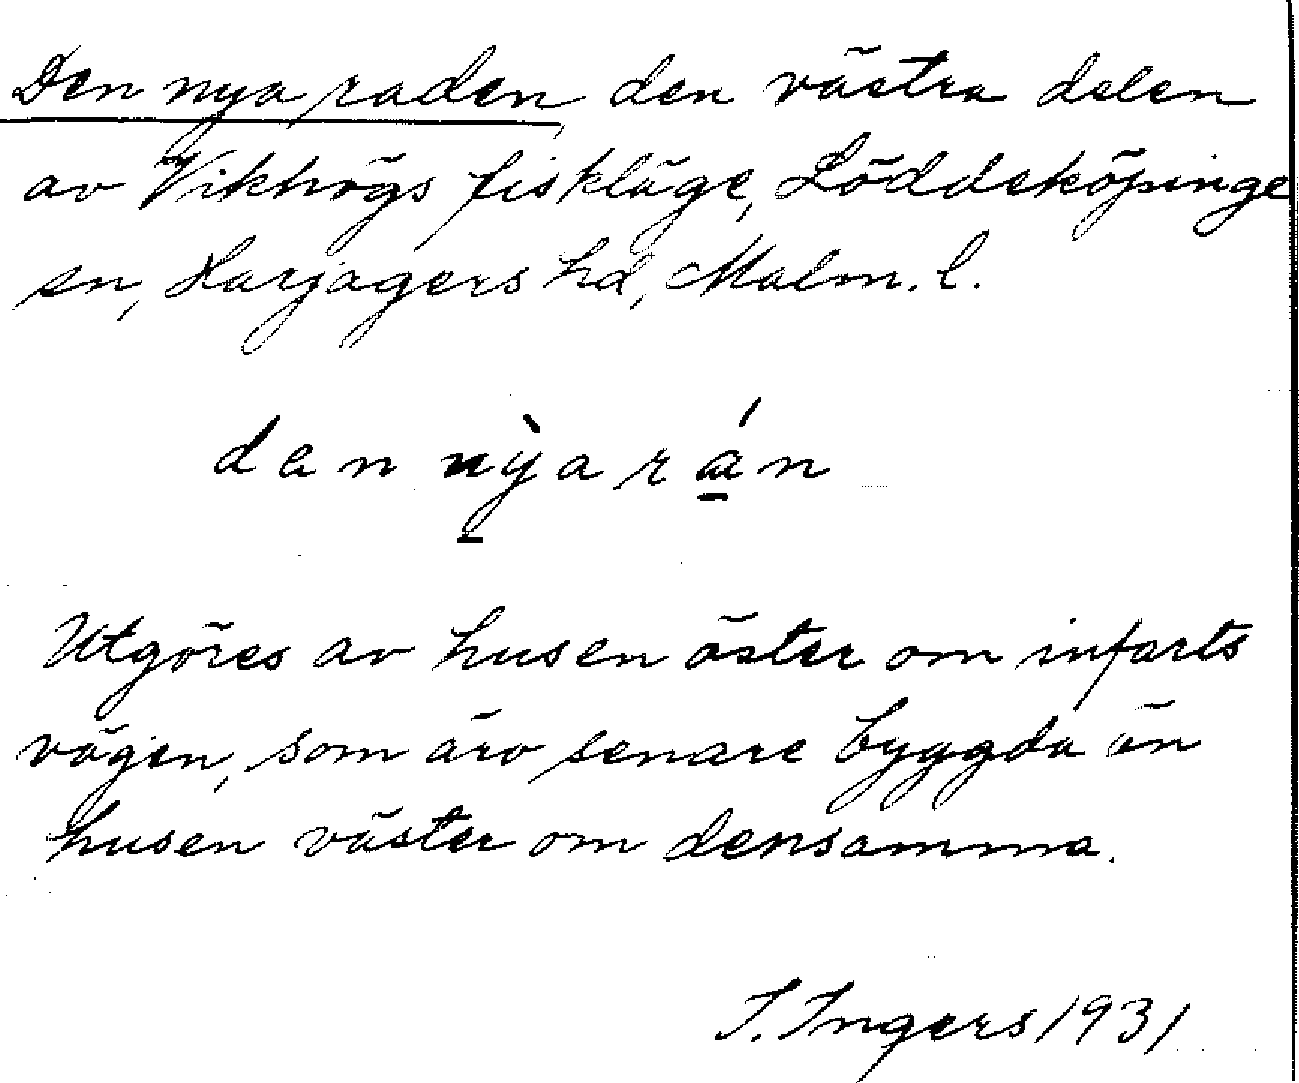 Den nya raden, den västra delen
av Vikhögs fiskläge, Löddeköpinge
sn, Harjagers hd, Malm. l.
den nỳa rán
Utgöres av husen öster om infarts
vägen, som äro senare byggda än
husen väster om densamma.
I. Ingers 1931